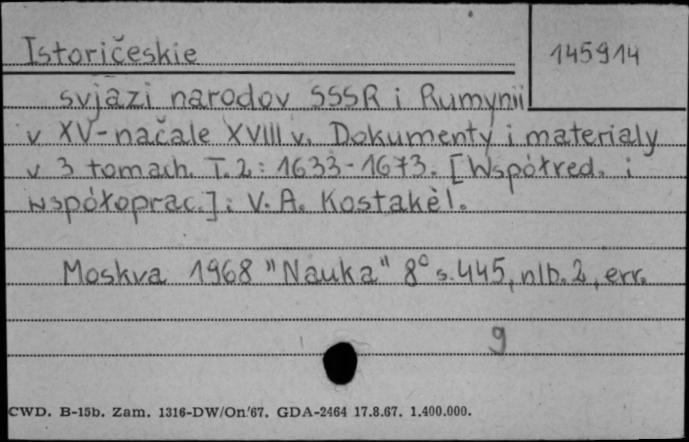 Istoričeskie
145914
svjazi narodov SSSR i Rumynii
v XV-načale XVIII v. Dokumenty i materialy
v 3 tomach. T. 2: 1633-1673. [Współred. i
współoprac.]: V. A. Kostakèl.
Moskva 1968 "Nauka" 8° s. 445, nlb. 2, err.
9
CWD. B-15b. Zam. 1316-DW/On/67. GDA-2464 17.8.67. 1.400.000.